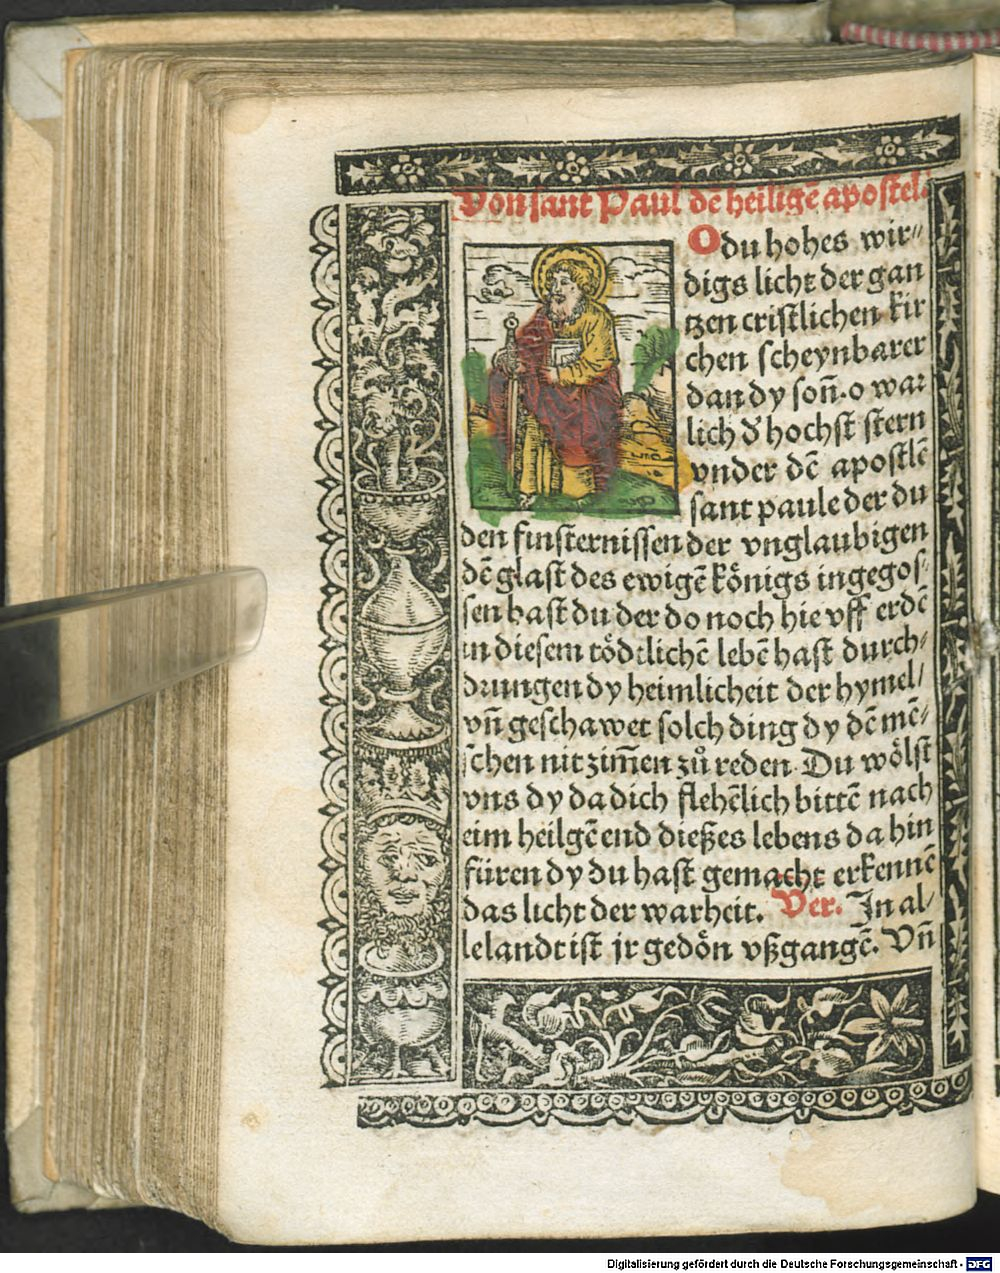 Von sant Paul dē heiligē apostel.
O du hohes wir⸗
digs licht der gan
tzen cristlichen kir
chen scheynbarer
dan dy soñ. o war
lich d' hochst stern
vnder dē apostlē
sant paule der du
den finsternissen der vnglaubigen
dē glast des ewigē königs ingegos⸗
sen hast du der do noch hie vff erdē
in diesem tödtlichē lebē hast durch⸗
drungen dy heimlicheit der hymel/
vñ geschawet solch ding dy dē mē⸗
schen nit zim̄en zů reden. Du wölst
vns dy da dich flehēlich bittē nach
eim heilgē end dießes lebens da hin
füren dy du hast gemacht erkennē
das licht der warheit. Ver. In al⸗
le landt ist jr gedön vßgangē. Vñ
Digitalisierung gefördert durch die Deutsche Forschungsgemeinschaft - DFG